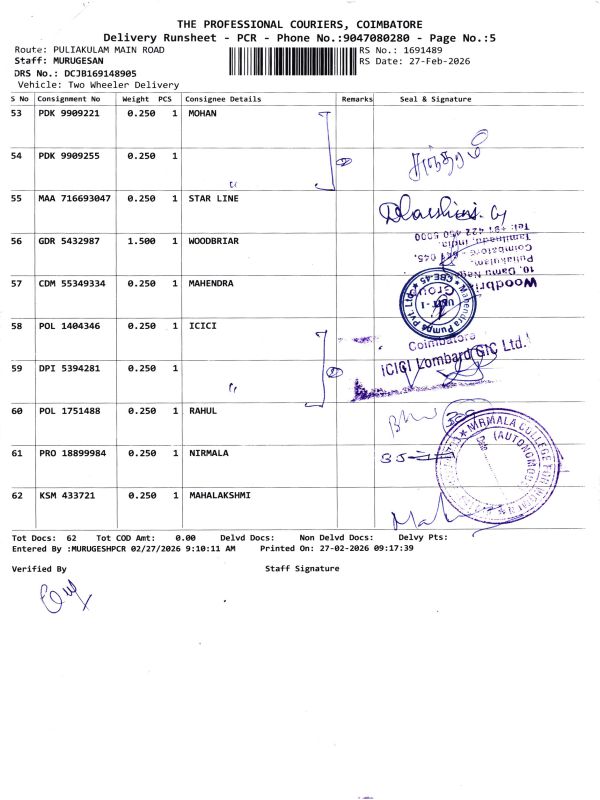 THE PROFESSIONAL COURIERS, COIMBATORE
Delivery Runsheet - PCR - Phone No.:9047080280 - Page No.:5
Route: PULIAKULAM MAIN ROAD RS No.: 1691489
Staff: MURUGESAN RS Date: 27-Feb-2026
DRS No.: DCJB169148905
Vehicle: Two Wheeler Delivery
S No Consignment No Weight PCS Consignee Details Remarks Seal & Signature
53 PDK 9909221 0.250 1 MOHAN
54 PDK 9909255 0.250 1 " 2
55 MAA 716693047 0.250 1 STAR LINE
56 GDR 5432987 1.500 1 WOODBRIAR
Woodbriar Group
10, Damu Nagar
Puliakulam,
Coimbatore - 641 045,
Tamilnadu, India.
Tel: +91 422 450 5000
57 CDM 55349334 0.250 1 MAHENDRA
Mahendra Pumps Pvt. Ltd. UNIT-1 CBE-45
58 POL 1404346 0.250 1 ICICI
Coimbatore
ICICI Lombard GIC Ltd.
59 DPI 5394281 0.250 1 " 2
60 POL 1751488 0.250 1 RAHUL
61 PRO 18899984 0.250 1 NIRMALA
NIRMALA COLLEGE FOR WOMEN (AUTONOMOUS)
62 KSM 433721 0.250 1 MAHALAKSHMI
Tot Docs: 62 Tot COD Amt: 0.00 Delvd Docs: Non Delvd Docs: Delvy Pts:
Entered By :MURUGESHPCR 02/27/2026 9:10:11 AM Printed On: 27-02-2026 09:17:39
Verified By Staff Signature